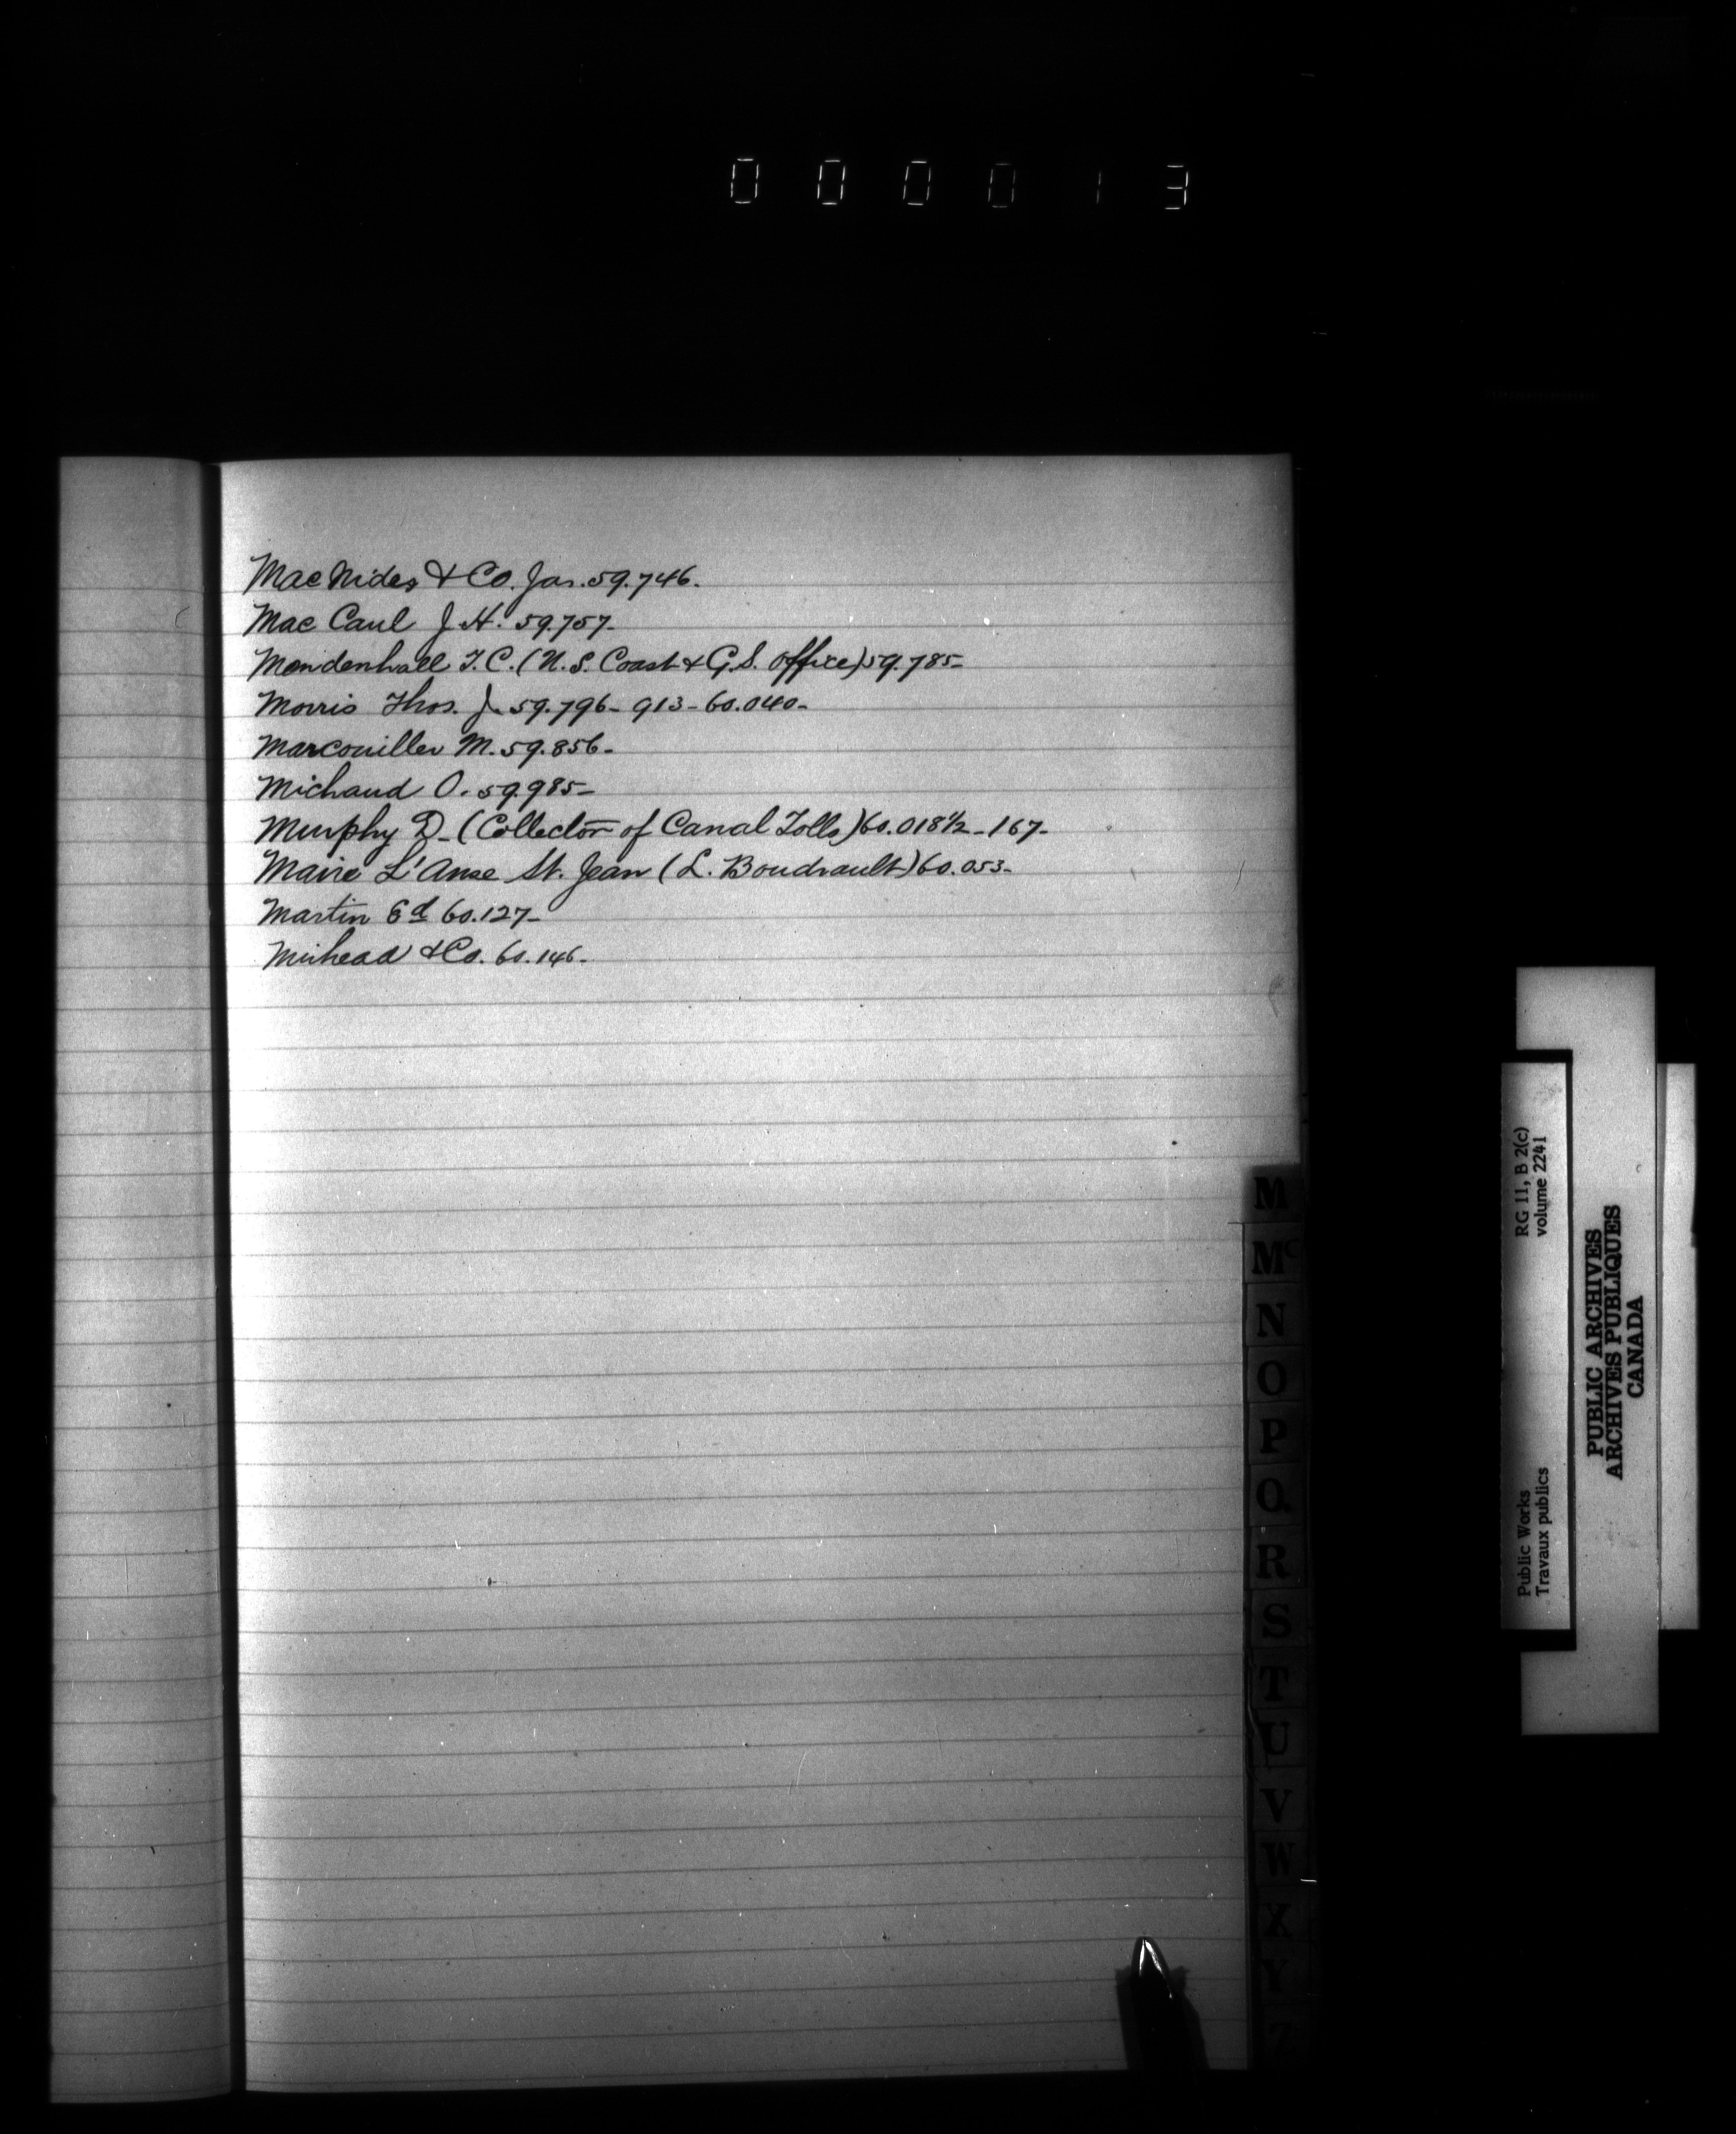 000013
MacNider & Co. Jas. 59.746.
Mac Caul J. H. 59.757-
Mendenhall T. C. (U. S. Coast & G. S. office) 59.785-
Morris Thos. J. 59.796- 913- 60.040-
Marcouiller M. 59.856-
Michaud O. 59.985-
Murphy D- (Collector of Canal Tolls) 60.018½ - 167-
Maire L'Anse St. Jean (L. Boudrault) 60.053-
Martin Ed 60.127-
Muihead & Co. 60.146-
M
Mc
N
O
P
Q
R
S
T
U
V
W
X
Y
Z
Public Works RG 11, B 2(c)
Travaux publics volume 2241
PUBLIC ARCHIVES
ARCHIVES PUBLIQUES
CANADA